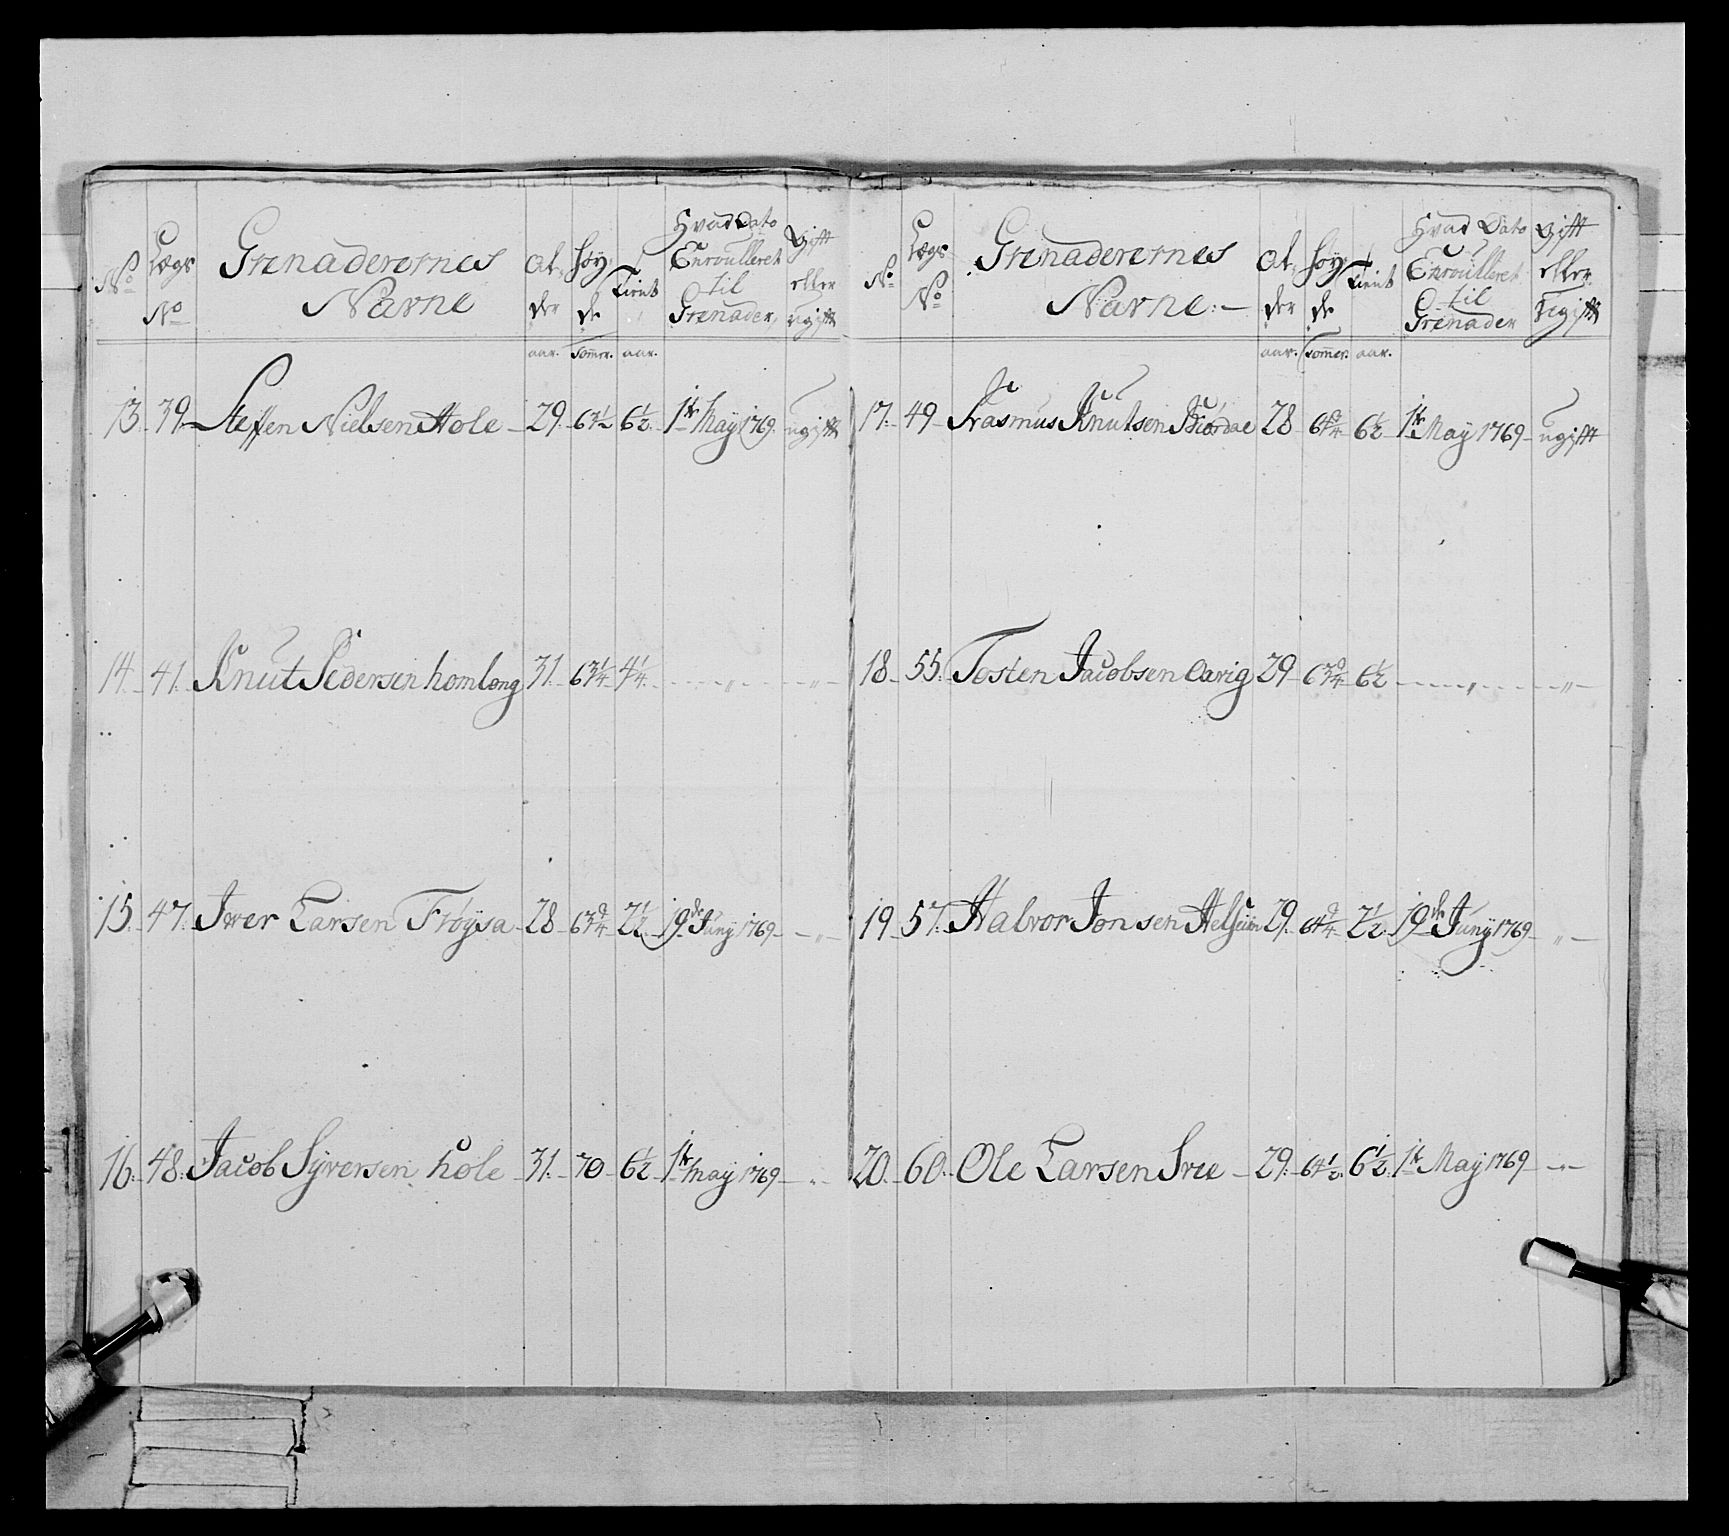 No Lægs No Grenaderernes Navne Al- der Høy- de Tient Hvad Dato Enroulleret til Grenader, Gift eller ugift
aar. Tommer. aar.
13. 39. Steffen Nielsen Hole 29. 63½ 6½ 1te May 1769. ugift
14. 41. Knut Pedersen homlong 31. 63¼ 4¼ - - „ - - „ -
15. 47. Iver Larsen Frøysa 28 63¾ 2½ 19de Juny 1769 - „ -
16. 48. Jacob Syversen hole 31. 70 6½ 1te May 1769 - „
No Lægs No Grenaderernes Navne:- Al- der Høy- de Tient Hvad Dato Enroulleret til Grenader Gift eller Ugift
aar. Tommer. aar.
17. 49 Rasmus Knutsen 28 64¾ 6½ 1te May 1769 ugift
18. 55. Tosten Jacobsen Aarig 29 63¾ 6½ - - „ - - „ -
19 57. Halvor Jonsen 29. 64¾ 2½ 19de Juny 1769 „ -
20. 60. Ole Larsen Sree 29. 64½ 6½ 1te May 1769 - „ -